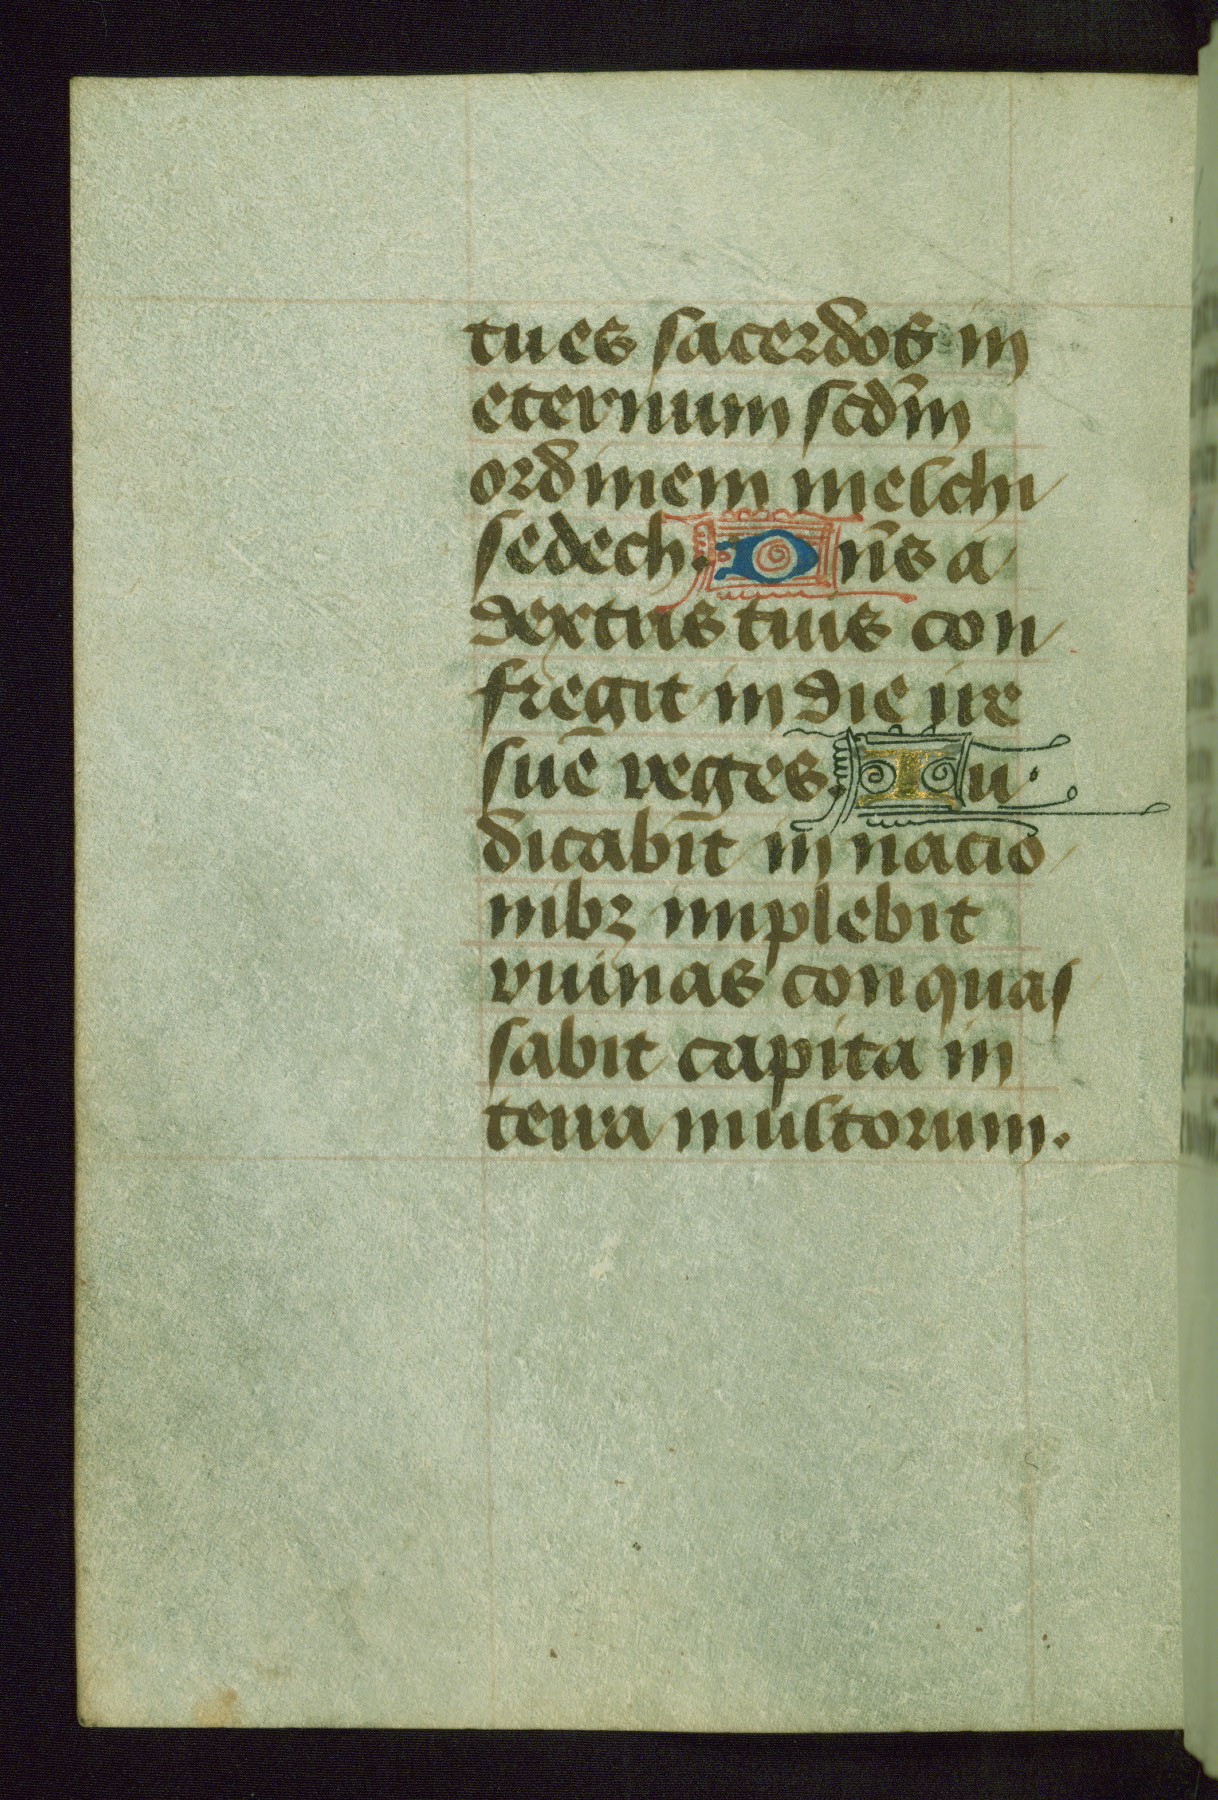 tu es sacerdos in
eternum scdm̄
ordinem melchi
sedech. Dn̄s a
dextris tuis con
fregit in die ire
sue reges. Iu
dicabit in nacio
nibꝫ implebit
ruinas conquas
sabit capita in
terra multorum.